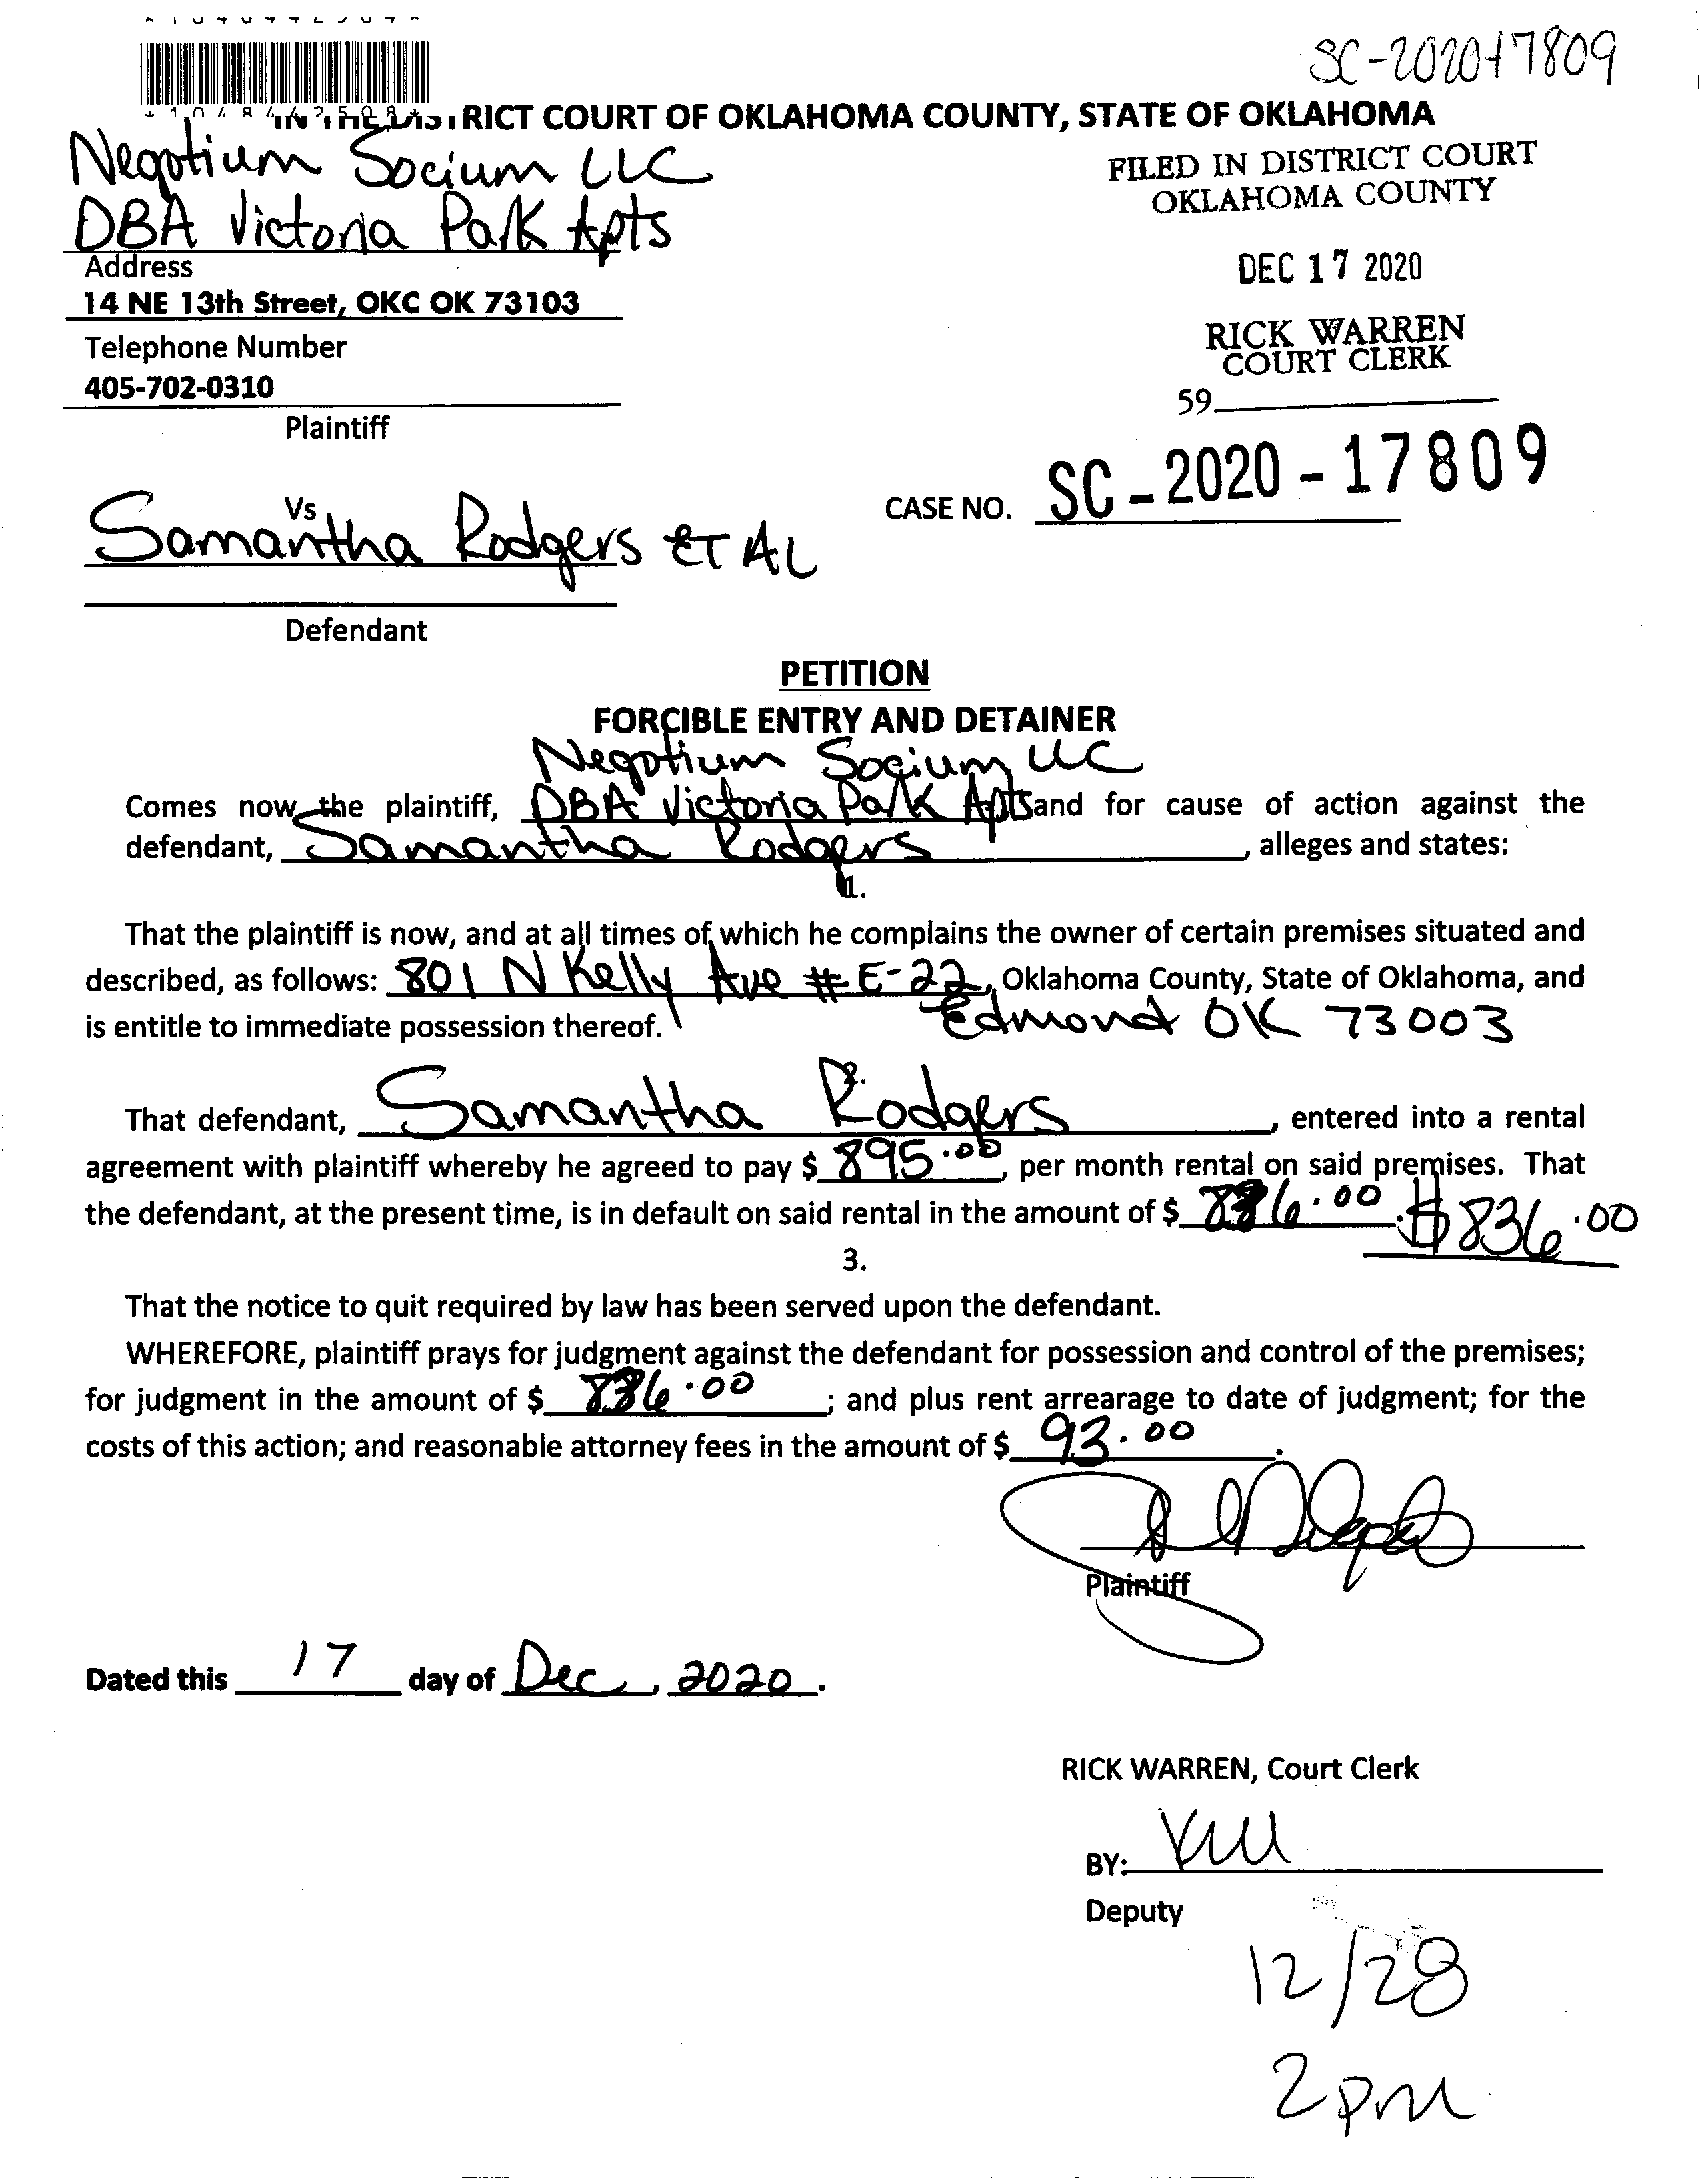 SC-2020-17809
IN THE DISTRICT COURT OF OKLAHOMA COUNTY, STATE OF OKLAHOMA
Negotium Socium LLC
DBA Victoria Park Apts
FILED IN DISTRICT COURT
OKLAHOMA COUNTY
Address
14 NE 13th Street, OKC OK 73103
DEC 17 2020
Telephone Number
405-702-0310
RICK WARREN
COURT CLERK
59
Plaintiff
Vs
Samantha Rodgers ET AL
CASE NO. SC-2020-17809
Defendant
PETITION
FORCIBLE ENTRY AND DETAINER
Negotium Socium LLC
Comes now the plaintiff, DBA Victoria Park Apts and for cause of action against the
defendant, Samantha Rodgers, alleges and states:
1.
That the plaintiff is now, and at all times of which he complains the owner of certain premises situated and
described, as follows: 801 N Kelly Ave # E-22, Oklahoma County, State of Oklahoma, and
is entitle to immediate possession thereof. Edmond OK 73003
2.
That defendant, Samantha Rodgers, entered into a rental
agreement with plaintiff whereby he agreed to pay $ 895.00, per month rental on said premises. That
the defendant, at the present time, is in default on said rental in the amount of $ 836.00. $836.00
3.
That the notice to quit required by law has been served upon the defendant.
WHEREFORE, plaintiff prays for judgment against the defendant for possession and control of the premises;
for judgment in the amount of $ 836.00 ; and plus rent arrearage to date of judgment; for the
costs of this action; and reasonable attorney fees in the amount of $ 93.00.
Plaintiff
Dated this 17 day of Dec, 2020.
RICK WARREN, Court Clerk
BY:
Deputy
12/28
2pm